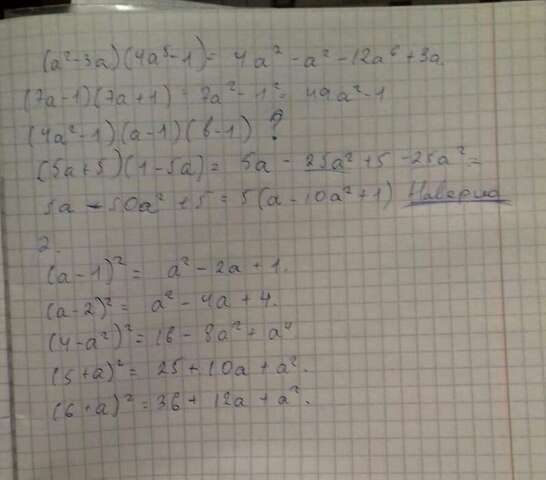 (a²-3a)(4a⁵-1)= 4a² - a² - 12a⁶ + 3a.
(7a-1)(7a+1) = 7a² - 1² = 49a² - 1
(4a²-1)(a-1)(b-1) ?
(5a+5)(1-5a) = 5a - 25a² + 5 - 25a² =
5a - 50a² + 5 = 5(a - 10a² + 1) Наверно
2.
(a-1)² = a² - 2a + 1.
(a-2)² = a² - 4a + 4.
(4-a²)² = 16 - 8a² + a⁴
(5+a)² = 25 + 10a + a².
(6+a)² = 36 + 12a + a².